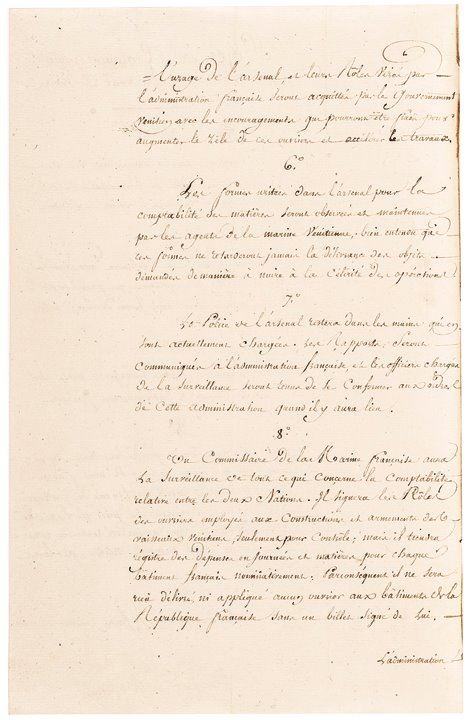 = l'usage de l'arsenal, et leurs Rôles Visés par
l'administration française seront acquittés par le Gouvernement
Vénitien avec les encouragements que pourront être fixés pour
augmenter le zèle de ces ouvriers et accélérer les travaux.
6.°
Les formes usitées dans l'arsenal pour la
comptabilité des matières seront observées et maintenues
par les agents de la marine Vénitienne, bien entendu que
ces formes ne retarderont jamais la délivrance des objets
demandés de manière à nuire à la Célérité des opérations.
7.°
La Police de l'arsenal restera dans les mains qui en
sont actuellement chargées. Les Rapports seront
Communiqués à l'administration française, et les officiers chargés
de la Surveillance seront tenus de se Conformer aux ordres
de Cette administration quand il y aura lieu.
8.°
Un Commissaire de la Marine française aura
la Surveillance de tout ce qui Concerne la Comptabilité
relative entre les deux Nations. Il signera les Rôles
des ouvriers employés aux Constructions et armements des 6
vaisseaux vénitiens, seulement pour Contrôle; mais il tiendra
registre des dépenses en journées et matières pour chaque
bâtiment français nominativement; Par conséquent il ne sera
rien délivré, ni appliqué aucun ouvrier aux bâtiments de la
République française sans un billet signé de lui.
L'administration